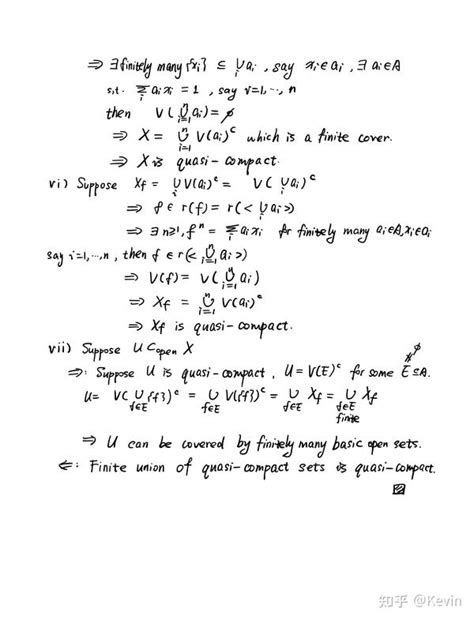 ⇒ ∃ finitely many {xᵢ} ⊆ ∪ᵢ aᵢ , say xᵢ ∈ aᵢ , ∃ aᵢ ∈ A
s.t. Σᵢ aᵢxᵢ = 1 , say i=1,⋯,n
then V(∪ᵢ₌₁ⁿ aᵢ) = ∅
⇒ X = ∪ᵢ₌₁ⁿ V(aᵢ)ᶜ which is a finite cover.
⇒ X is quasi-compact.
vi) Suppose Xf = ∪ᵢ V(aᵢ)ᶜ = V(∪ᵢ aᵢ)ᶜ
⇒ f ∈ r(f) = r(<∪ᵢ aᵢ>)
⇒ ∃ n≥1, fⁿ = Σᵢ aᵢxᵢ for finitely many aᵢ∈A, xᵢ∈aᵢ
say i=1,⋯,n , then f ∈ r(<∪ᵢ₌₁ⁿ aᵢ>)
⇒ V(f) = V(∪ᵢ₌₁ⁿ aᵢ)
⇒ Xf = ∪ᵢ₌₁ⁿ V(aᵢ)ᶜ
⇒ Xf is quasi-compact.
vii) Suppose U ⊂open X
⇒: Suppose U is quasi-compact , U = V(E)ᶜ for some E ⊆ A.
U = V(∪f∈E {f})ᶜ = ∪f∈E V({f})ᶜ = ∪f∈E Xf = ∪f∈E finite Xf
⇒ U can be covered by finitely many basic open sets.
⇐: Finite union of quasi-compact sets is quasi-compact.
知乎 @Kevin